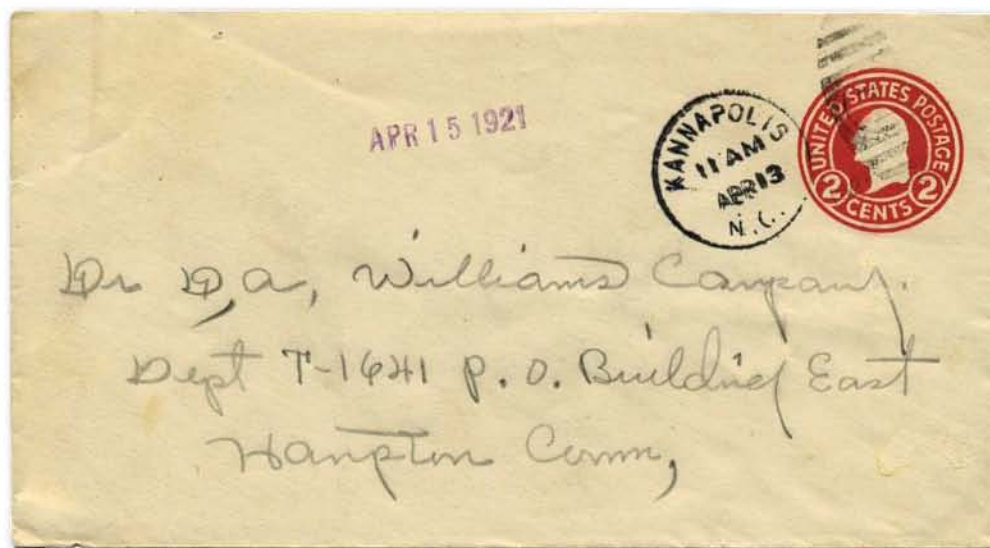 APR 15 1921
KANNAPOLIS
11 AM
APR 13
N.C.
UNITED STATES POSTAGE
2 CENTS 2
Dr D,a, Williams Company.
Dept T-1641 P.O. Building East
Hanpton Conn,